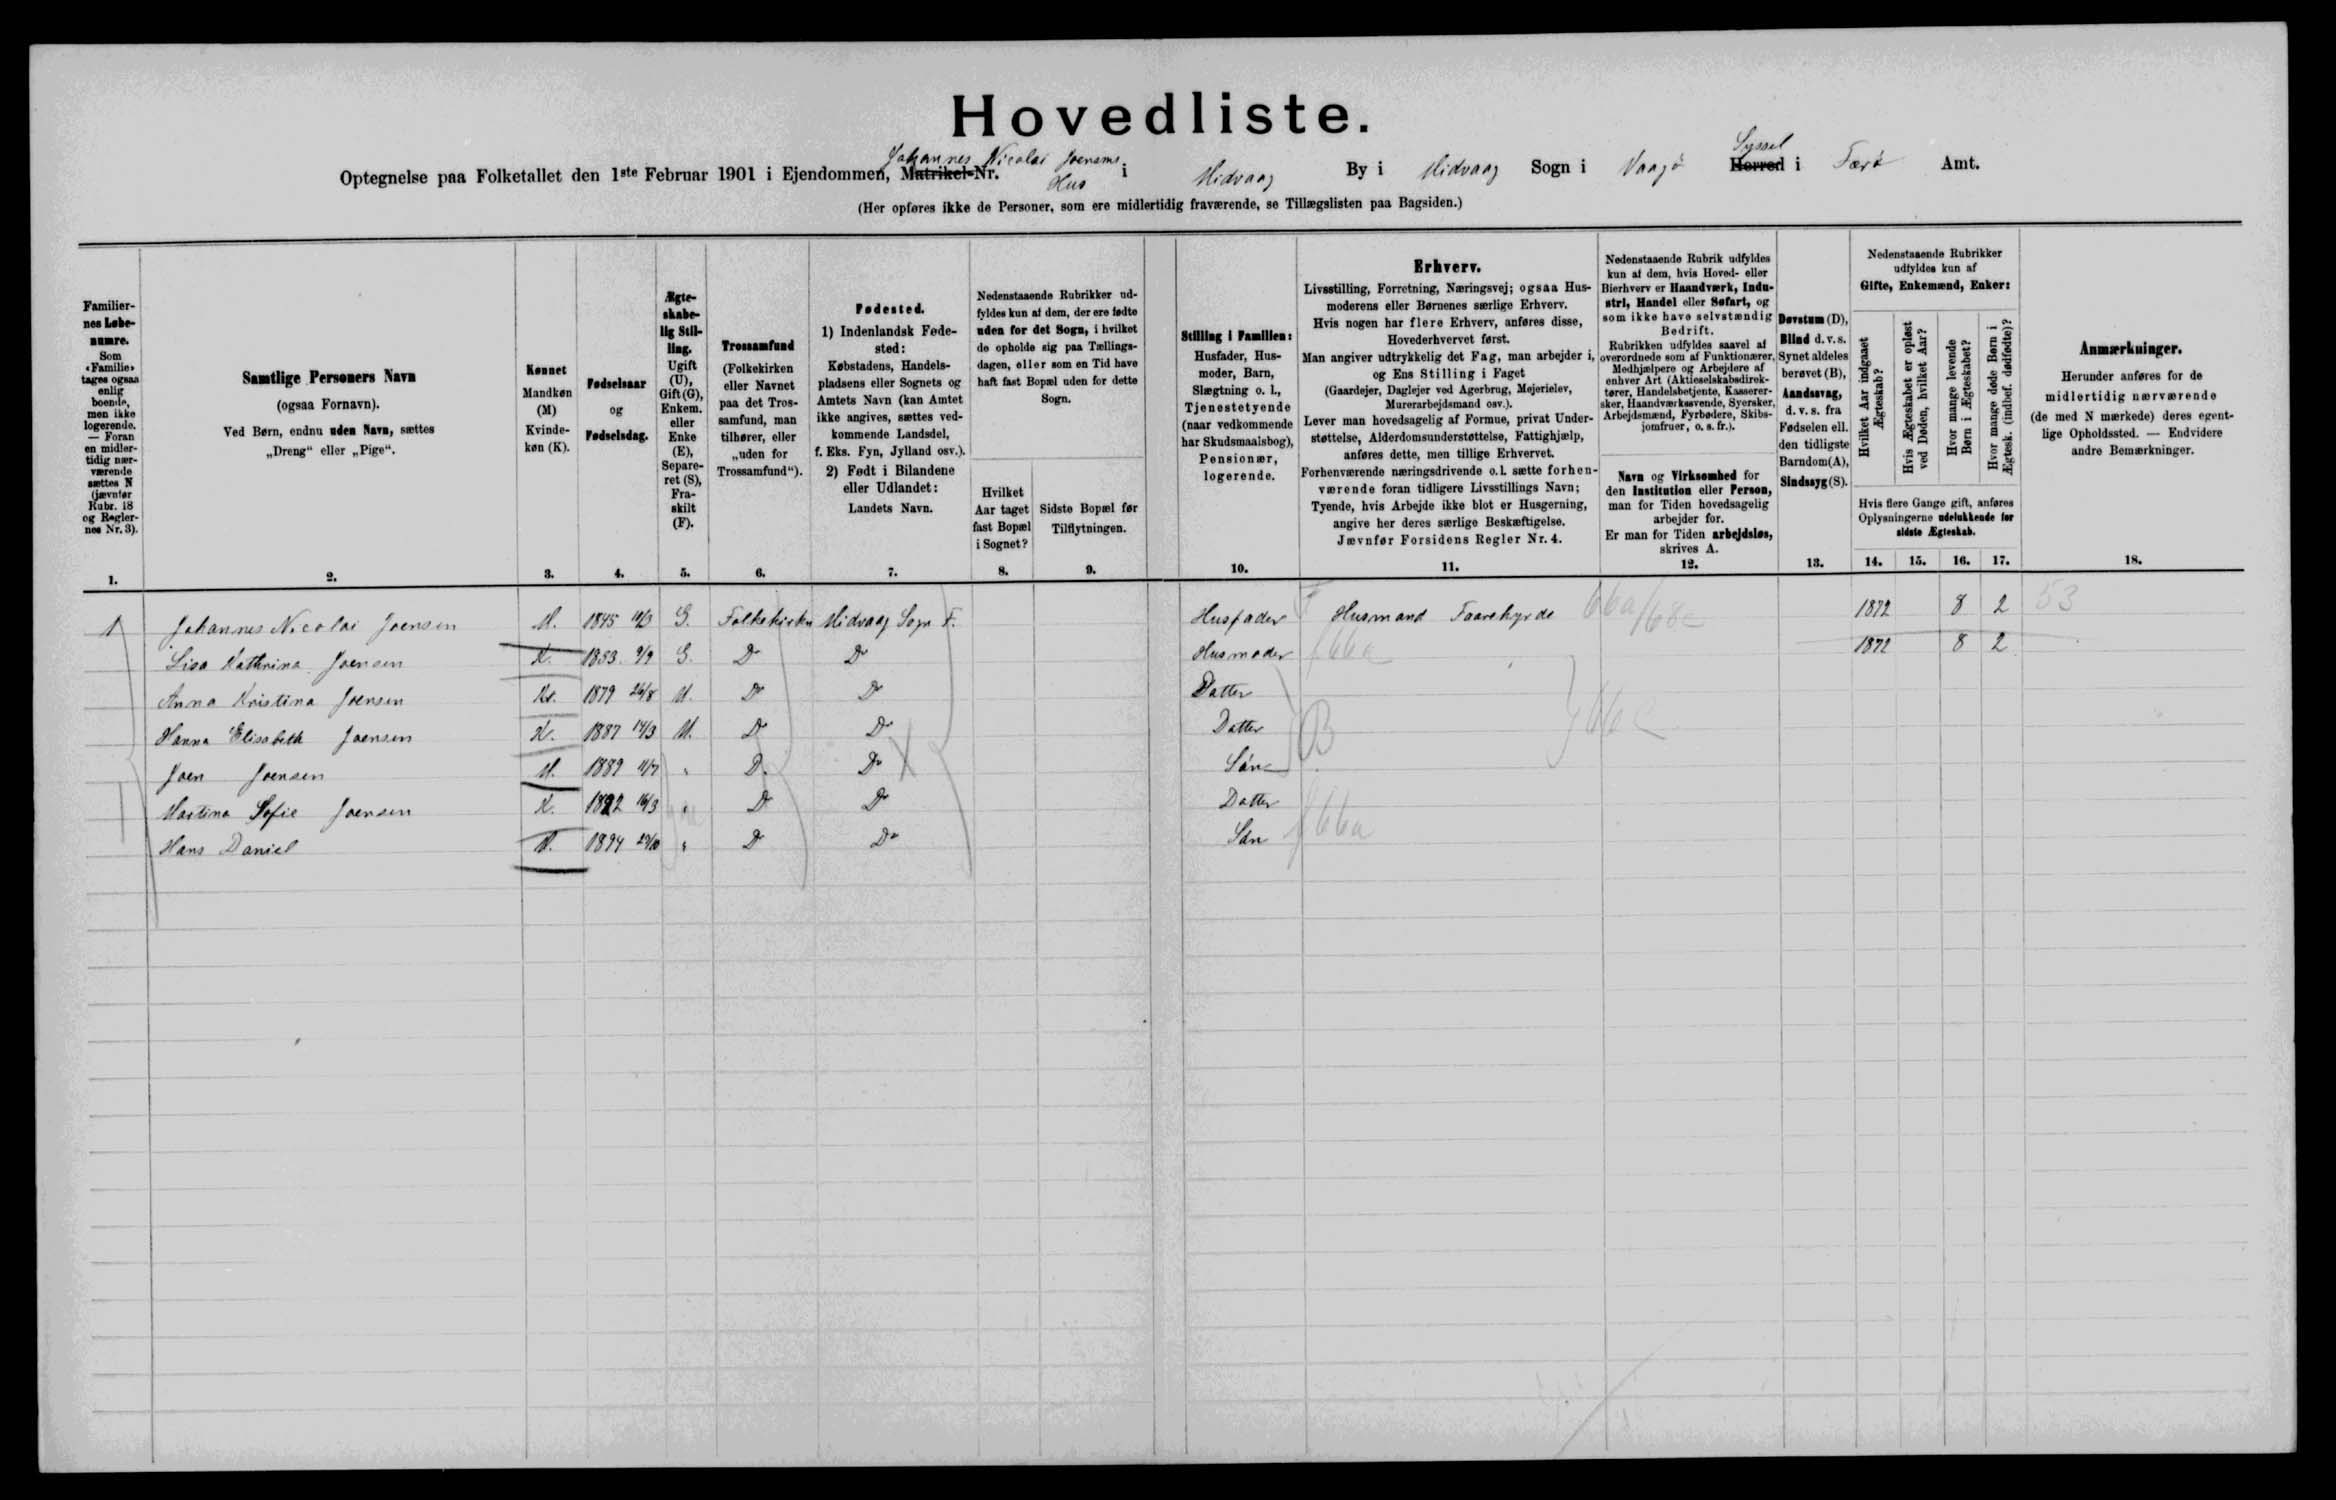 Hovedliste.
Optegnelse paa Folketallet den 1ste Februar 1901 i Ejendommen, Matrikel-Nr. Johannes Nicolai Joensens Hus i Midvaag By i Midvaag Sogn i Vaagø Herred Syssel i Færø Amt.
(Her opføres ikke de Personer, som ere midlertidig fraværende, se Tillægslisten paa Bagsiden.)
Familier-
nes Løbe-
numre.
Som
«Familie»
tages ogsaa
enlig
boende,
men ikke
logerende.
— Foran
en midler-
tidig nær-
værende
sættes N
(jævnfør
Rubr. 18
og Regler-
nes Nr. 3).
1.
Samtlige Personers Navn
(ogsaa Fornavn).
Ved Børn, endnu uden Navn, sættes
„Dreng“ eller „Pige“.
2.
Kønnet
Mandkøn
(M)
Kvinde-
køn (K).
3.
Fødselsaar
og
Fødselsdag.
4.
Ægte-
skabe-
lig Stil-
ling.
Ugift
(U),
Gift (G),
Enkem.
eller
Enke
(E),
Separe-
ret (S),
Fra-
skilt
(F).
5.
Trossamfund
(Folkekirken
eller Navnet
paa det Tros-
samfund, man
tilhører, eller
„uden for
Trossamfund“).
6.
Fødested.
1) Indenlandsk Føde-
sted:
Købstadens, Handels-
pladsens eller Sognets og
Amtets Navn (kan Amtet
ikke angives, sættes ved-
kommende Landsdel,
f. Eks. Fyn, Jylland osv.).
2) Født i Bilandene
eller Udlandet:
Landets Navn.
7.
Nedenstaaende Rubrikker ud-
fyldes kun af dem, der ere fødte
uden for det Sogn, i hvilket
de opholde sig paa Tællings-
dagen, eller som en Tid have
haft fast Bopæl uden for dette
Sogn.
Hvilket
Aar taget
fast Bopæl
i Sognet?
8.
Sidste Bopæl før
Tilflytningen.
9.
Stilling i Familien:
Husfader, Hus-
moder, Barn,
Slægtning o. l.,
Tjenestetyende
(naar vedkommende
har Skudsmaalsbog),
Pensionær,
logerende.
10.
Erhverv.
Livsstilling, Forretning, Næringsvej; ogsaa Hus-
moderens eller Børnenes særlige Erhverv.
Hvis nogen har flere Erhverv, anføres disse,
Hovederhvervet først.
Man angiver udtrykkelig det Fag, man arbejder i,
og Ens Stilling i Faget
(Gaardejer, Daglejer ved Agerbrug, Mejerielev,
Murerarbejdsmand osv.).
Lever man hovedsagelig af Formue, privat Under-
støttelse, Alderdomsunderstøttelse, Fattighjælp,
anføres dette, men tillige Erhvervet.
Forhenværende næringsdrivende o. l. sætte forhen-
værende foran tidligere Livsstillings Navn;
Tyende, hvis Arbejde ikke blot er Husgerning,
angive her deres særlige Beskæftigelse.
Jævnfør Forsidens Regler Nr. 4.
11.
Nedenstaaende Rubrik udfyldes
kun af dem, hvis Hoved- eller
Bierhverv er Haandværk, Indu-
stri, Handel eller Søfart, og
som ikke have selvstændig
Bedrift.
Rubrikken udfyldes saavel af
overordnede som af Funktionærer,
Medhjælpere og Arbejdere af
enhver Art (Aktieselskabsdirek-
tører, Handelsbetjente, Kasserer-
sker, Haandværkssvende, Syersker,
Arbejdsmænd, Fyrbødere, Skibs-
jomfruer, o. s. fr.).
Navn og Virksomhed for
den Institution eller Person,
man for Tiden hovedsagelig
arbejder for.
Er man for Tiden arbejdsløs,
skrives A.
12.
Døvstum (D),
Blind d. v. s.
Synet aldeles
berøvet (B),
Aandssvag,
d. v. s. fra
Fødselen ell.
den tidligste
Barndom (A),
Sindssyg (S).
13.
Nedenstaaende Rubrikker
udfyldes kun af
Gifte, Enkemænd, Enker:
Hvilket Aar indgaaet
Ægteskab?
Hvis Ægteskabet er opløst
ved Døden, hvilket Aar?
Hvor mange levende
Børn i Ægteskabet?
Hvor mange døde Børn i
Ægtesk. (indbef. dødfødte)?
Hvis flere Gange gift, anføres
Oplysningerne udelukkende for
sidste Ægteskab.
14. 15. 16. 17.
Anmærkninger.
Herunder anføres for de
midlertidig nærværende
(de med N mærkede) deres egent-
lige Opholdssted. — Endvidere
andre Bemærkninger.
18.
1 Johannes Nicolai Joensen M. 1845 G. Folkekirken Midvaag Sogn F. Husfader Husmand Faarehyrde 66a/68c 1872 8 2 53
Lisa Kathrina Joensen K. 1853 9/9 G. Do Do Husmoder 66a 1872 8 2
Anna Kristina Joensen K. 1879 26/8 U. Do Do Datter
Hanna Elisabeth Joensen K. 1887 14/3 U. Do Do Datter B 66c
Joen Joensen M. 1889 11/7 " D. Do X Søn
Martina Sofie Joensen K. 1892 16/3 " D Do Datter
Hans Daniel M. 1894 29/10 " Do Do Søn 66a